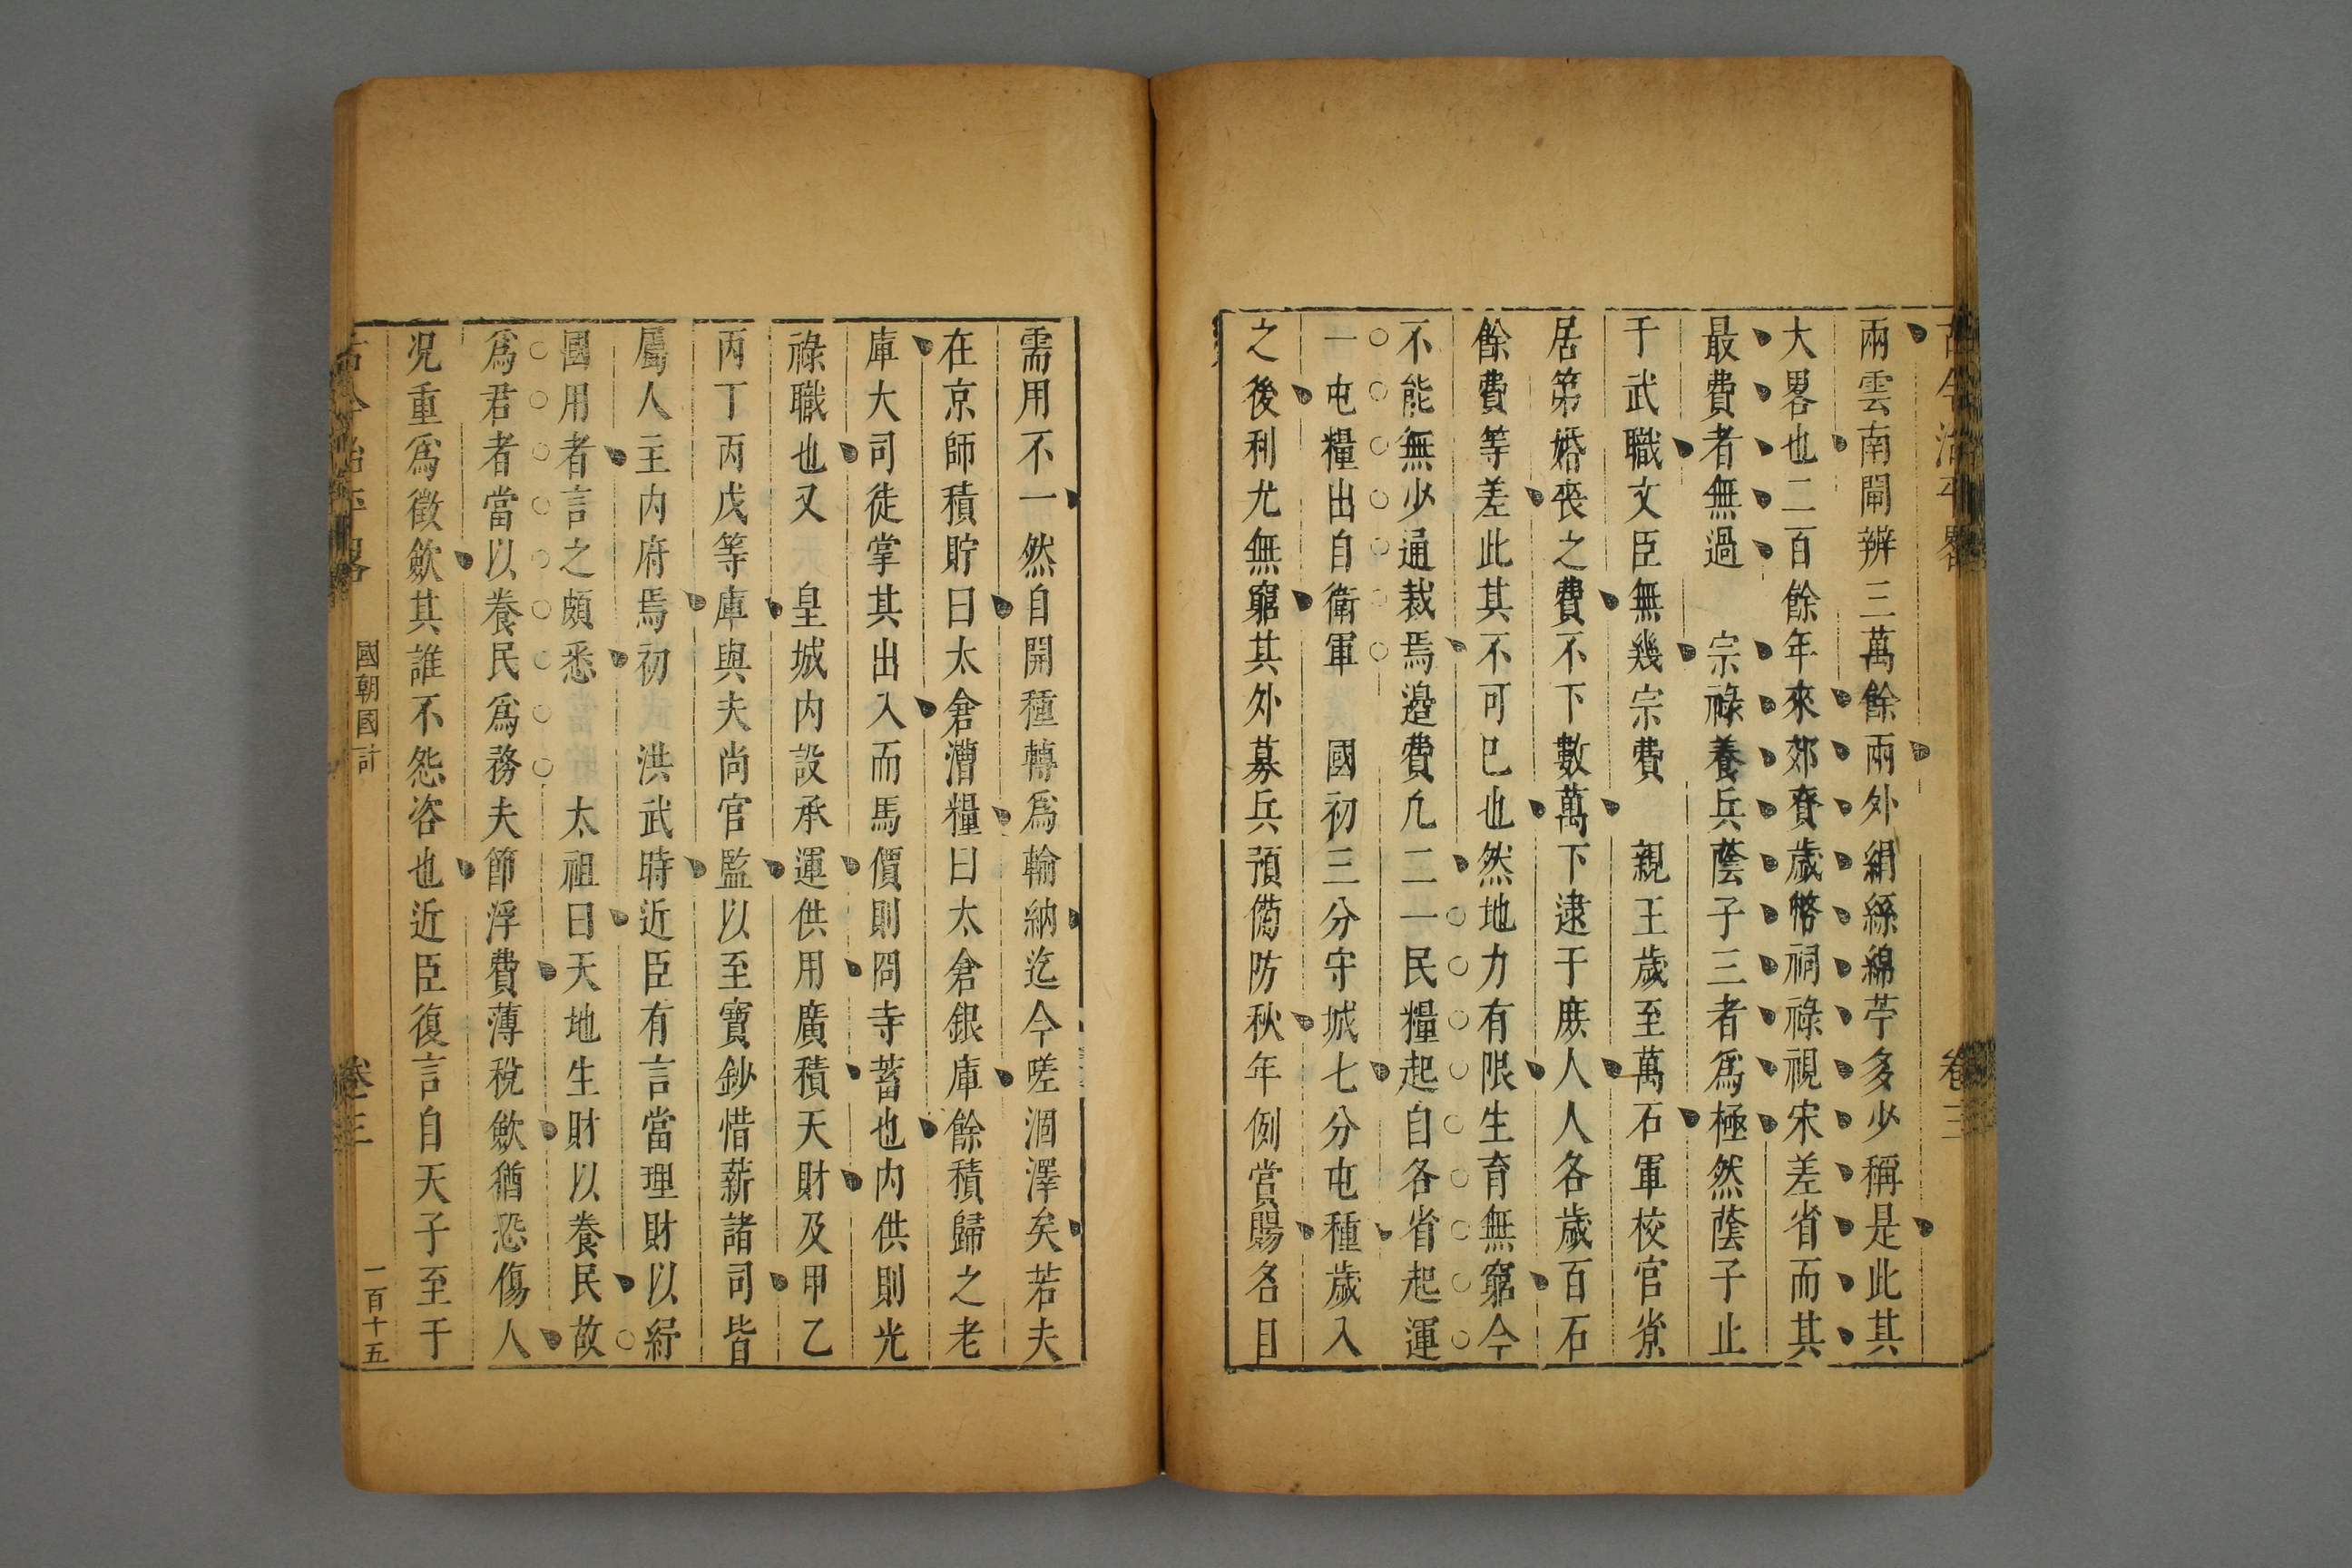 古今治平畧
卷三
兩雲南閘辨三萬餘兩外絹絲綿苧多少稱是此其
大畧也二百餘年來郊賚歲幣祠祿視宋差省而其
最費者無過　宗祿養兵蔭子三者爲極然蔭子止
于武職文臣無幾宗費　親王歲至萬石軍校官寮
居第婚丧之費不下數萬下逮于庶人人各歲百石
餘費等差此其不可已也然地力有限生育無窮今
不能無少通裁焉邉費凢二一民糧起自各省起運
一屯糧出自衛軍　國初三分守城七分屯種歲入
之後利尤無窮其外募兵預偹防秋年例賞賜各目
需用不一然自開種轉爲輸納迄今嗟涸澤矣若夫
在京師積貯曰太倉漕糧曰太倉銀庫餘積歸之老
庫大司徒掌其出入而馬價則冏寺蓄也内供則光
祿職也又　皇城内設承運供用廣積天財及甲乙
丙丁丙戊等庫與夫尚官監以至寶鈔惜薪諸司皆
屬人主内府焉初　洪武時近臣有言當理財以紓
國用者言之頗悉　太祖曰天地生財以養民故
爲君者當以養民爲務夫節浮費薄稅歛猶恐傷人
况重爲徵歛其誰不怨咨也近臣復言自天子至于
古今治平畧
國朝國計
卷三
一百十五